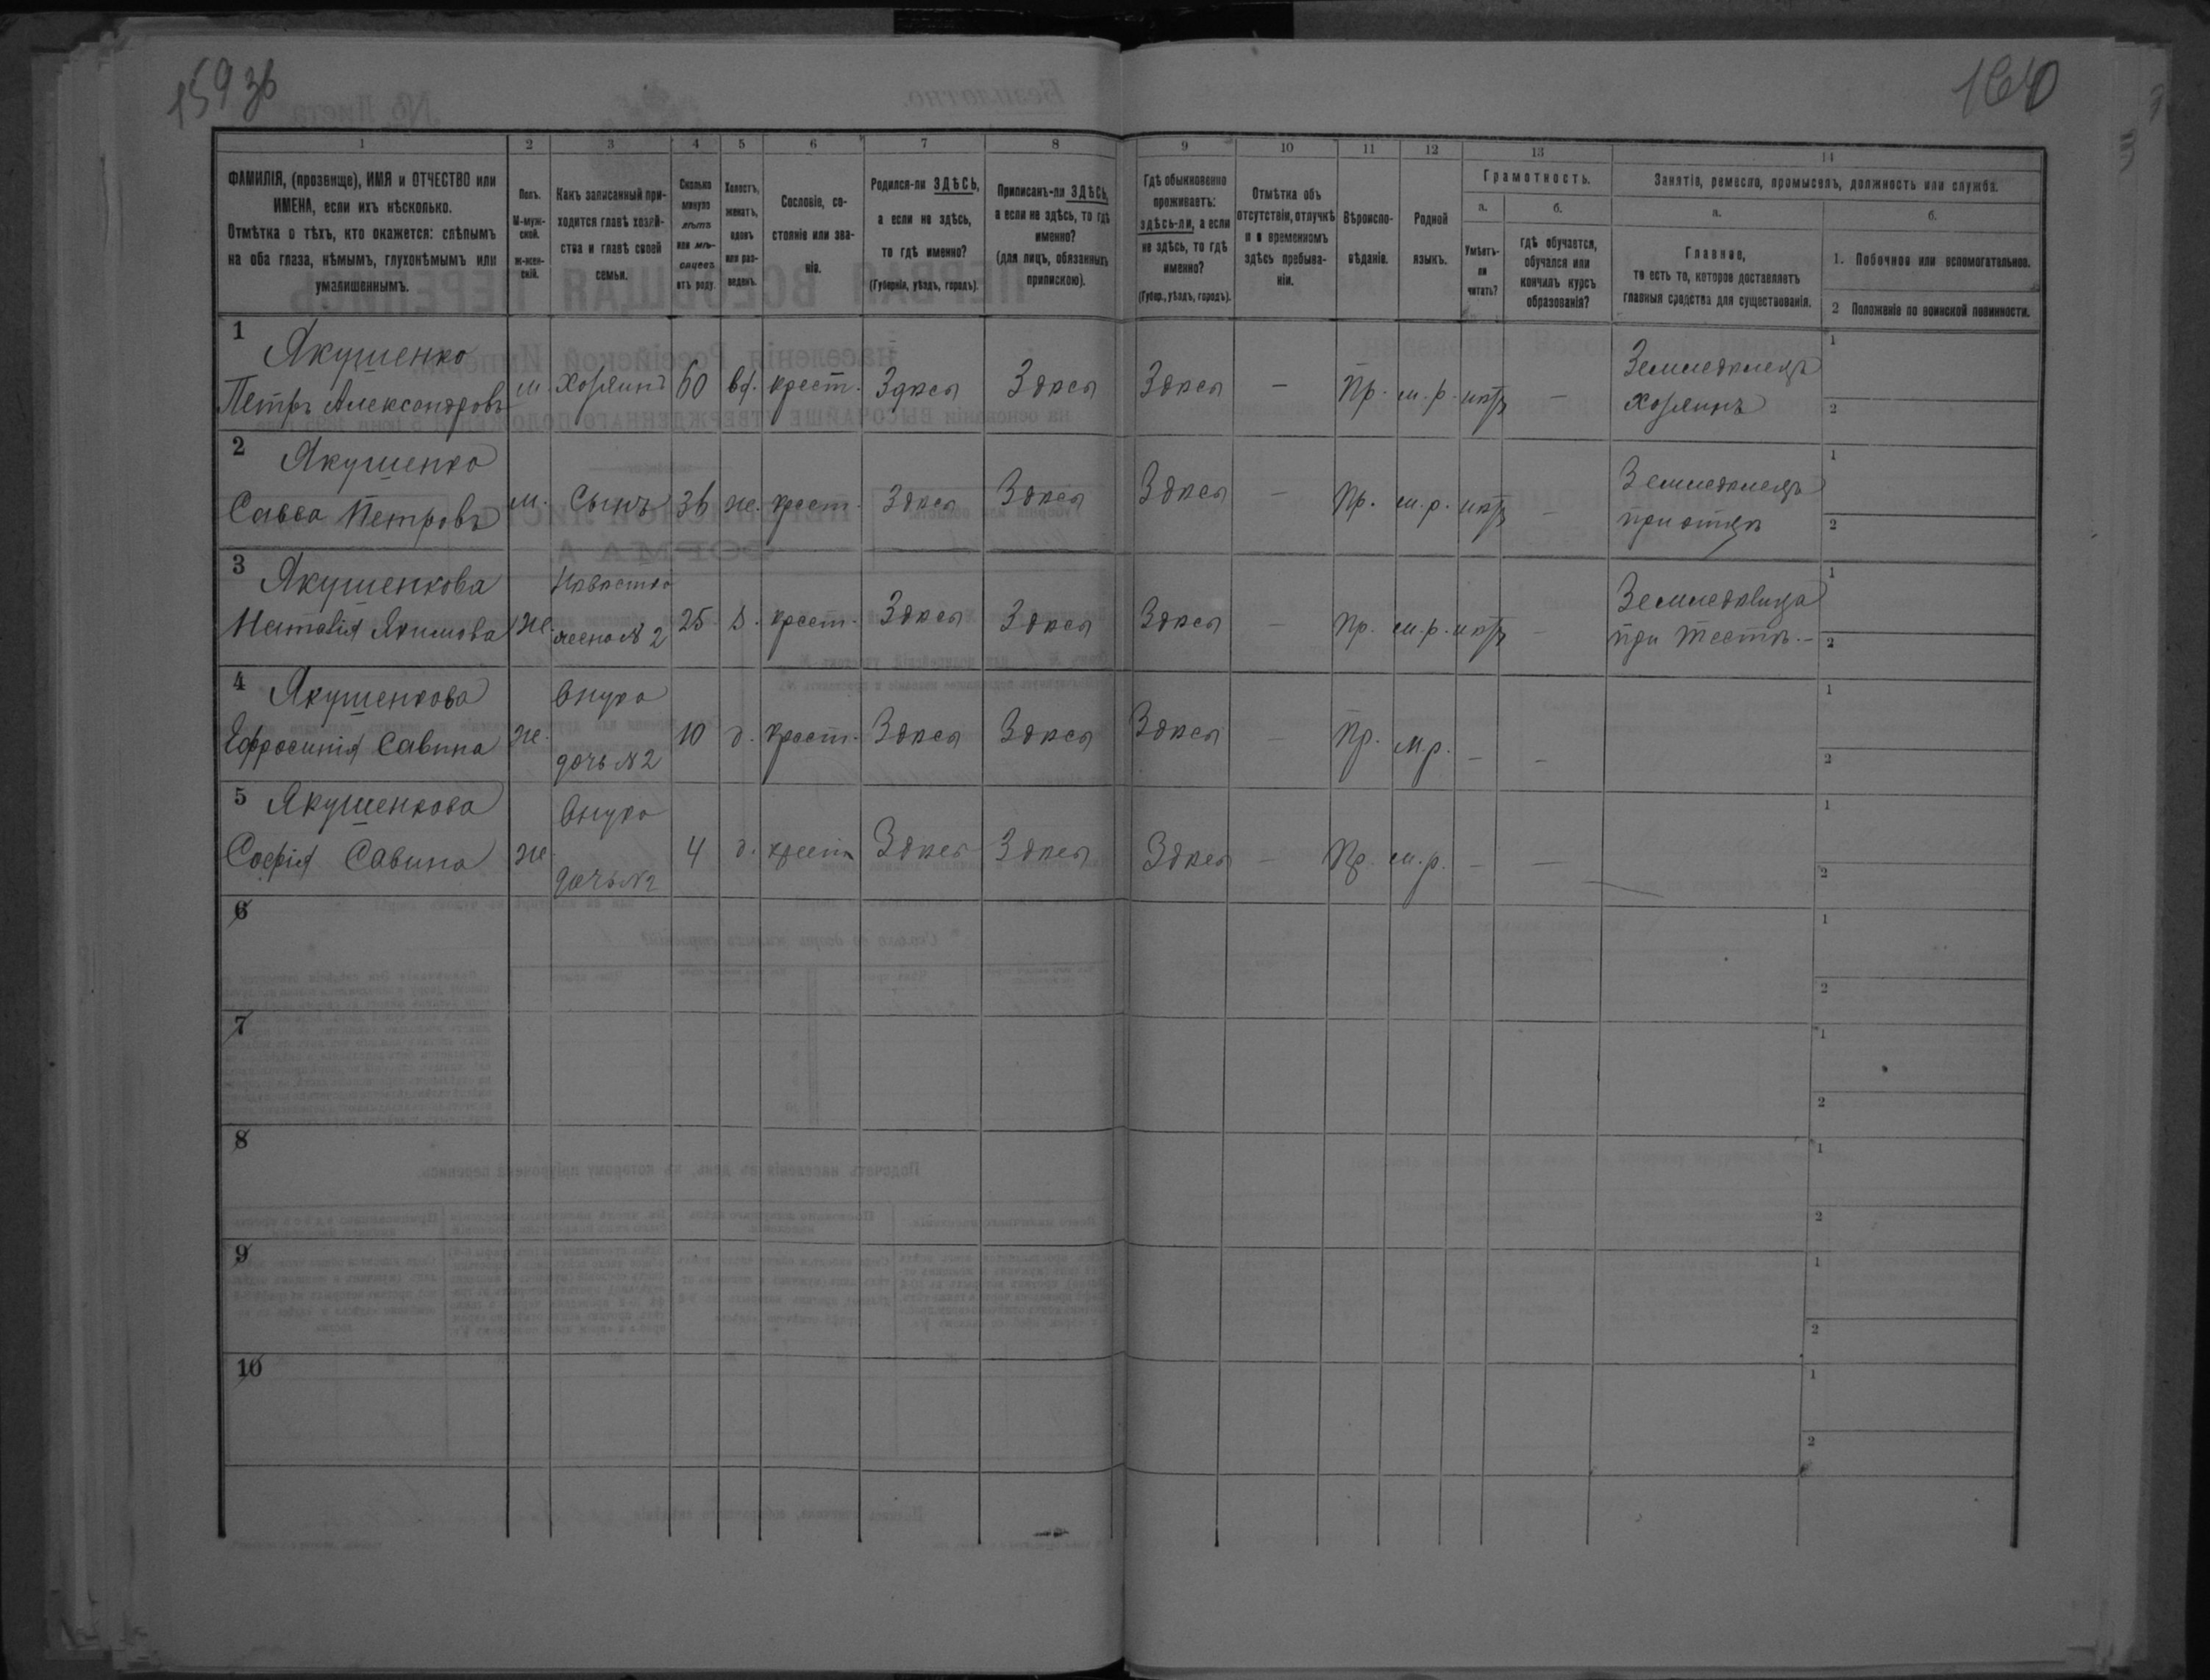 159 зв
160
1
2
3
4
5
6
7
8
9
10
11
12
13
14
ФАМИЛІЯ, (прозвище), ИМЯ и ОТЧЕСТВО или
ИМЕНА, если ихъ нѣсколько.
Отмѣтка о тѣхъ, кто окажется: слѣпымъ
на оба глаза, нѣмымъ, глухонѣмымъ или
умалишеннымъ.
Полъ.
М-муж-
ской.
ж-жен-
скій.
Какъ записанный при-
ходится главѣ хозяй-
ства и главѣ своей
семьи.
Сколько
минуло
лѣтъ
или мѣ-
сяцевъ
отъ роду.
Холостъ,
женатъ,
вдовъ
или раз-
веденъ.
Сословіе, со-
стояніе или зва-
ніе.
Родился-ли ЗДѢСЬ,
а если не здѣсь,
то гдѣ именно?
(Губернія, уѣздъ, городъ).
Приписанъ-ли ЗДѢСЬ,
а если не здѣсь, то гдѣ
именно?
(для лицъ, обязанныхъ
припискою).
Гдѣ обыкновенно
проживаетъ:
здѣсь-ли, а если
не здѣсь, то гдѣ
именно?
(Губер., уѣздъ, городъ).
Отмѣтка объ
отсутствіи, отлучкѣ
и о временномъ
здѣсь пребыва-
ніи.
Вѣроиспо-
вѣданіе.
Родной
языкъ.
Грамотность.
а.
б.
Умѣетъ-
ли
читать?
гдѣ обучается,
обучался или
кончилъ курсъ
образованія?
Занятіе, ремесло, промыселъ, должность или служба.
а.
б.
Главное,
то есть то, которое доставляетъ
главныя средства для существованія.
1. Побочное или вспомогательное.
2 Положеніе по воинской повинности.
1
Якушенко
Петръ Александровъ
м. хозяинъ 60 вд. крест. Здѣсь Здѣсь Здѣсь – Пр. м.р. нѣтъ –
Земледѣлецъ
хозяинъ
1
2
2
Якушенко
Савва Петровъ
м. Сынъ 36 же. крест. Здѣсь Здѣсь Здѣсь – Пр. м.р. нѣтъ –
Земледѣлецъ
при отцѣ
1
2
3
Якушенкова
Наталія Якимова
же.
Невѣстка
жена № 2
25 з. крест. Здѣсь Здѣсь Здѣсь – Пр. м.р. нѣтъ –
Земледѣлица
при тестѣ.–
1
2
4
Якушенкова
Ефросинія Савина
же.
внука
дочь № 2
10 д. крест. Здѣсь Здѣсь Здѣсь – Пр. м.р. – –
1
2
5
Якушенкова
Софія Савина
же
внука
дочь № 2
4 д. крест Здѣсь Здѣсь Здѣсь – Пр. м.р. – –
1
2
6
1
2
7
1
2
8
1
2
9
1
2
10
1
2